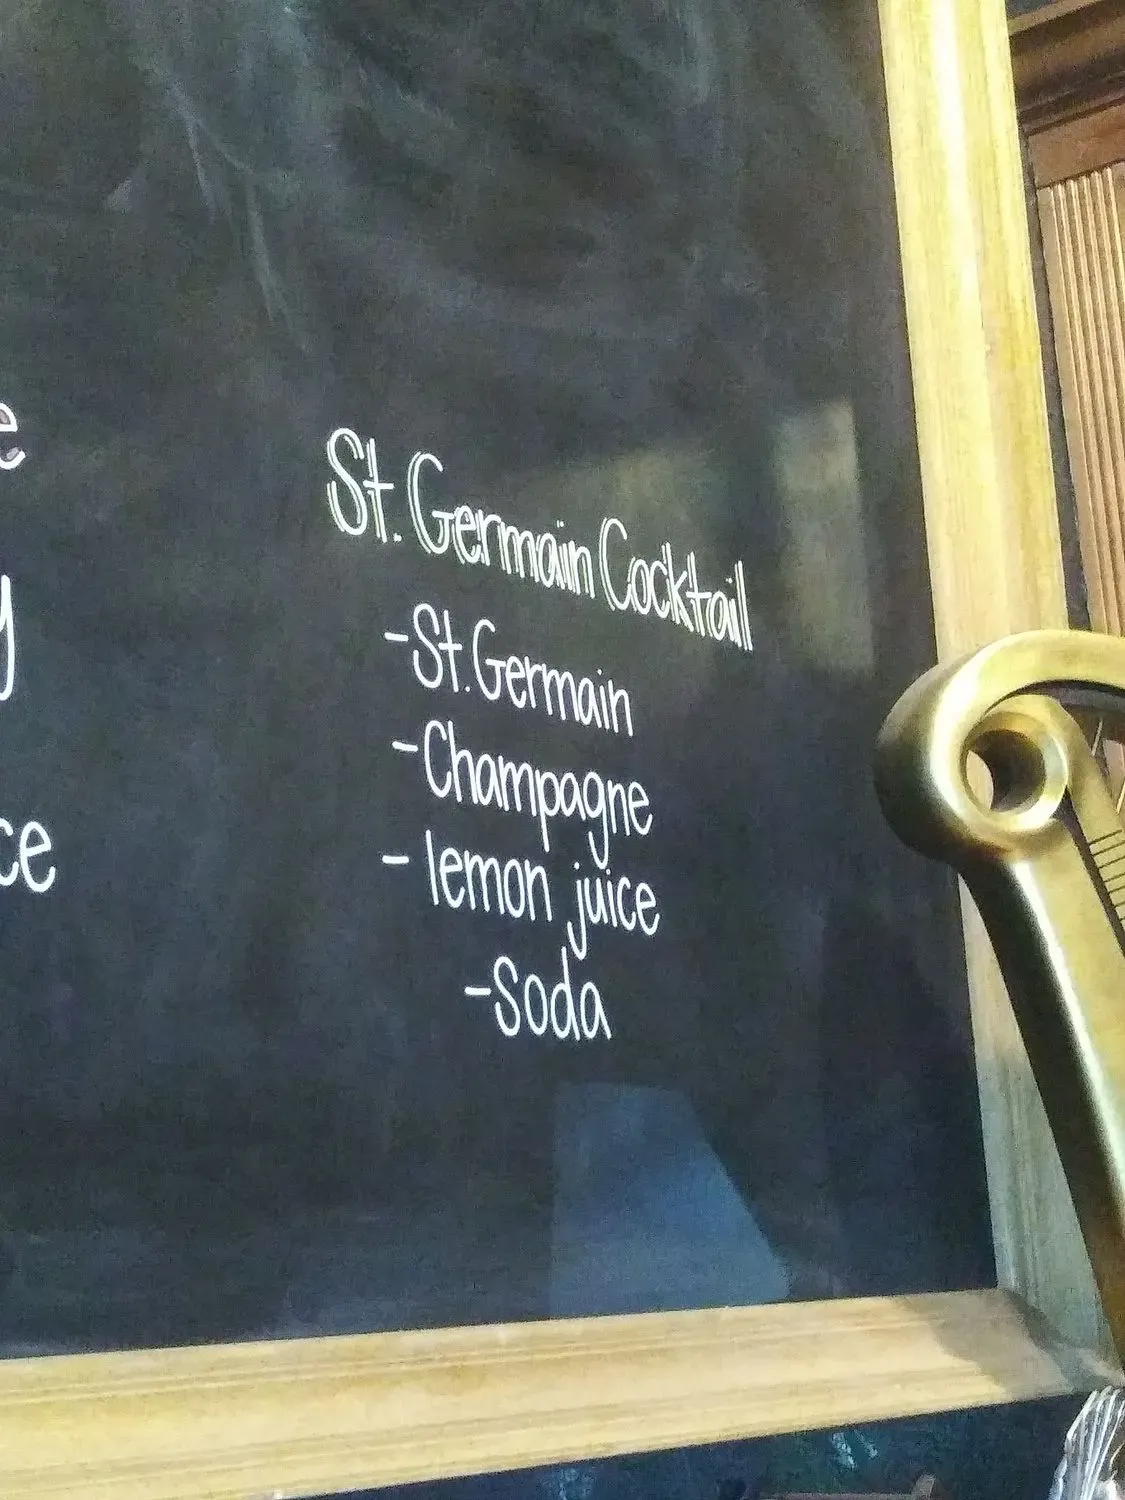 St. Germain Cocktail
-St. Germain
-Champagne
- lemon juice
-Soda